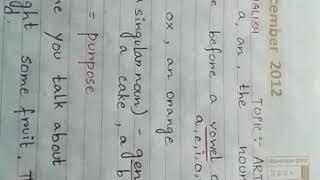 cember 2012
NGLISH
TOPIC:- ART
a, an, the noun
e before a vowel
a,e,i,o,
ox, an orange
singular noun) - gen
a cake, a b
= purpose
e you talk about
ght some fruit. T